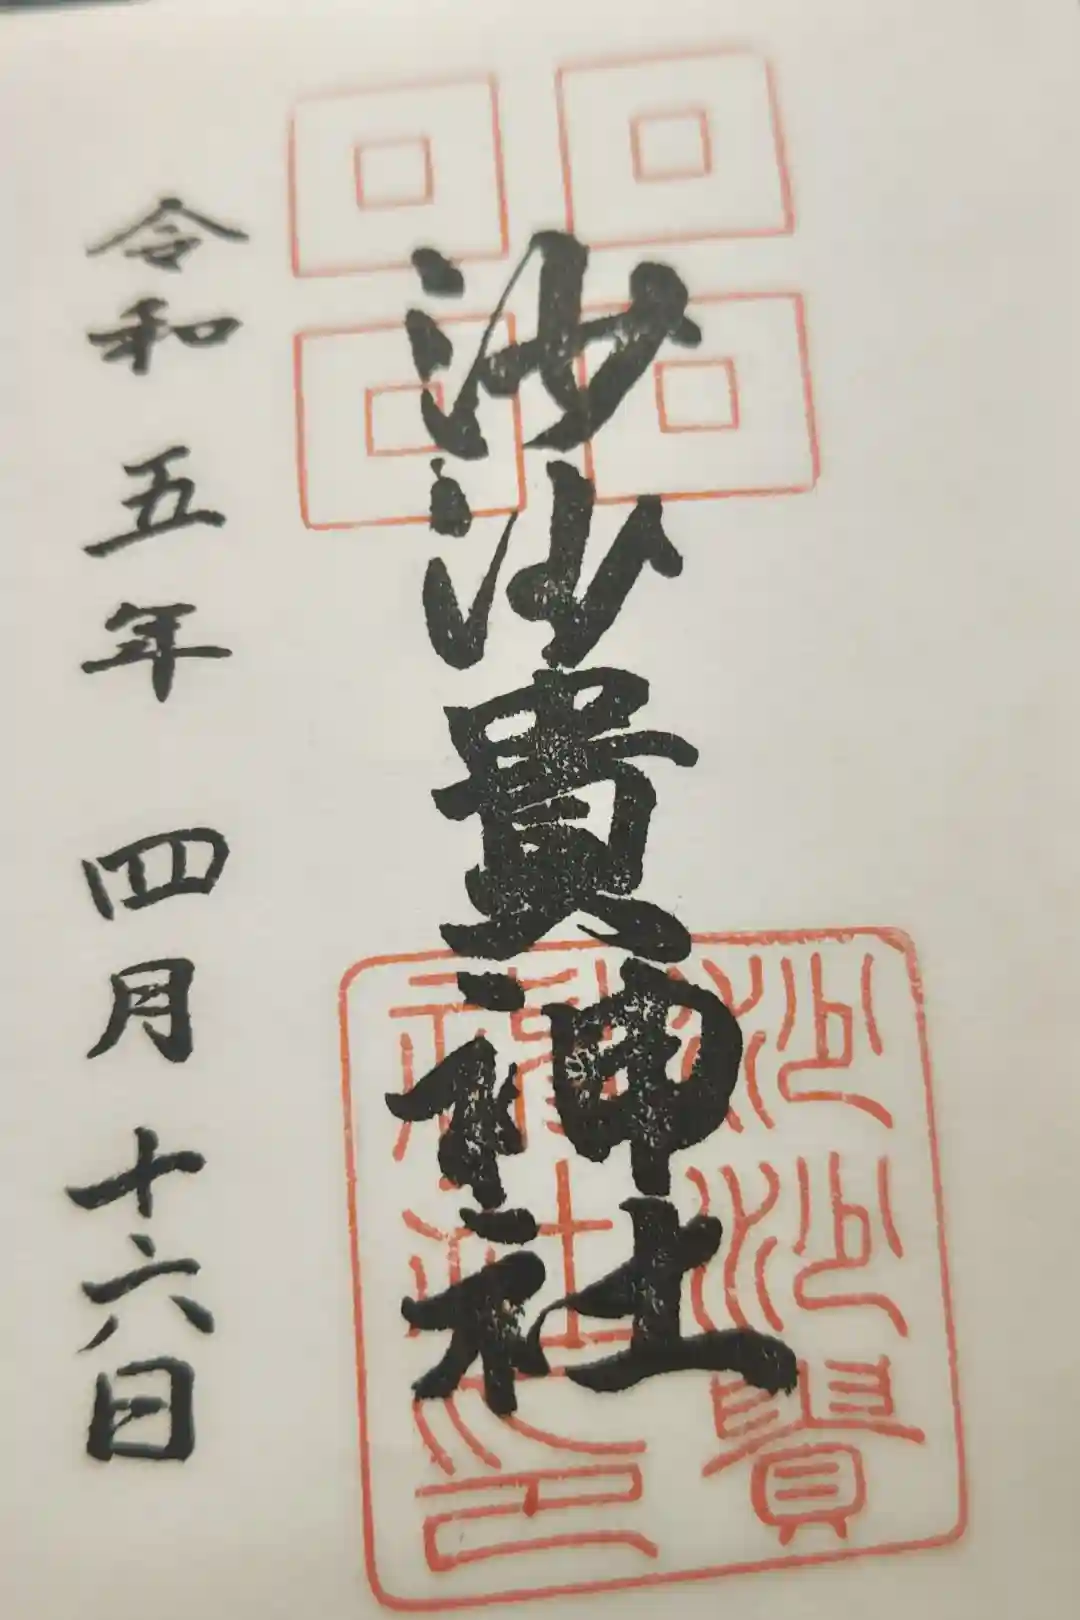 沙沙貴神社
令和五年 四月十六日
沙沙貴
神社印